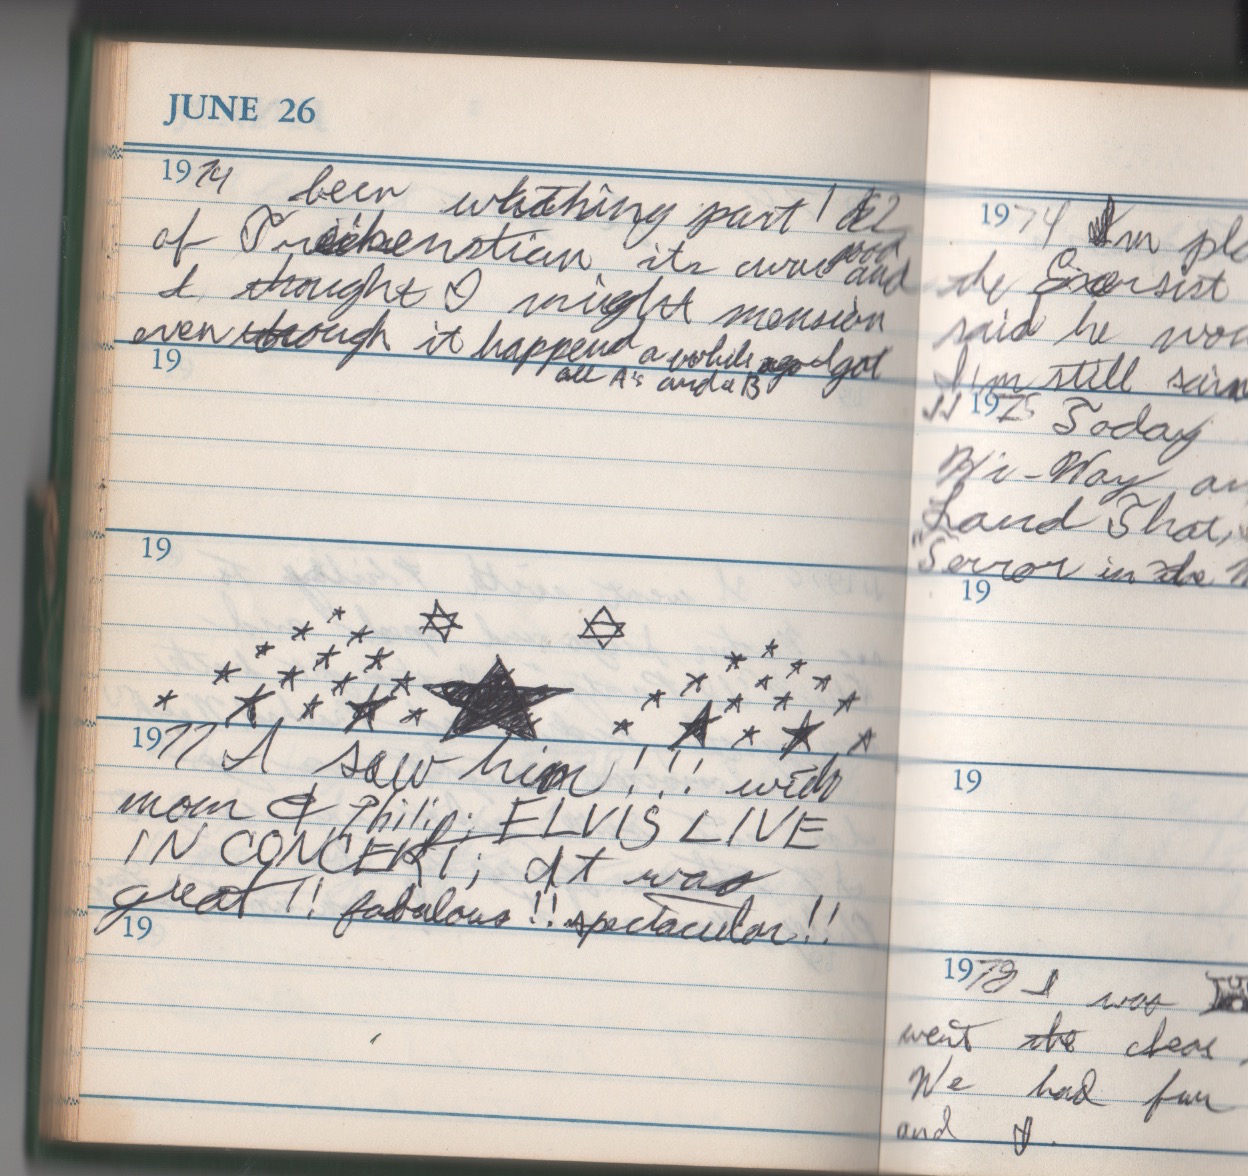 JUNE 26
1974 been whatching part 1 & 2
of Frankenstian its was good and
I thought I might mension
even though it happend a while ago I got
19 all A's and a B
19
1977 I saw him!!! with
mom & Philip; ELVIS LIVE
IN CONCERT; It was
great!! fabalous!! spectacular!!
19
1974 Im pla
the Exorsist
said he wou
I'm still sain
1975 Today
Hi-Way an
Land That,
Terror in the
19
19
1978 I was
went the
We had fun
and I.